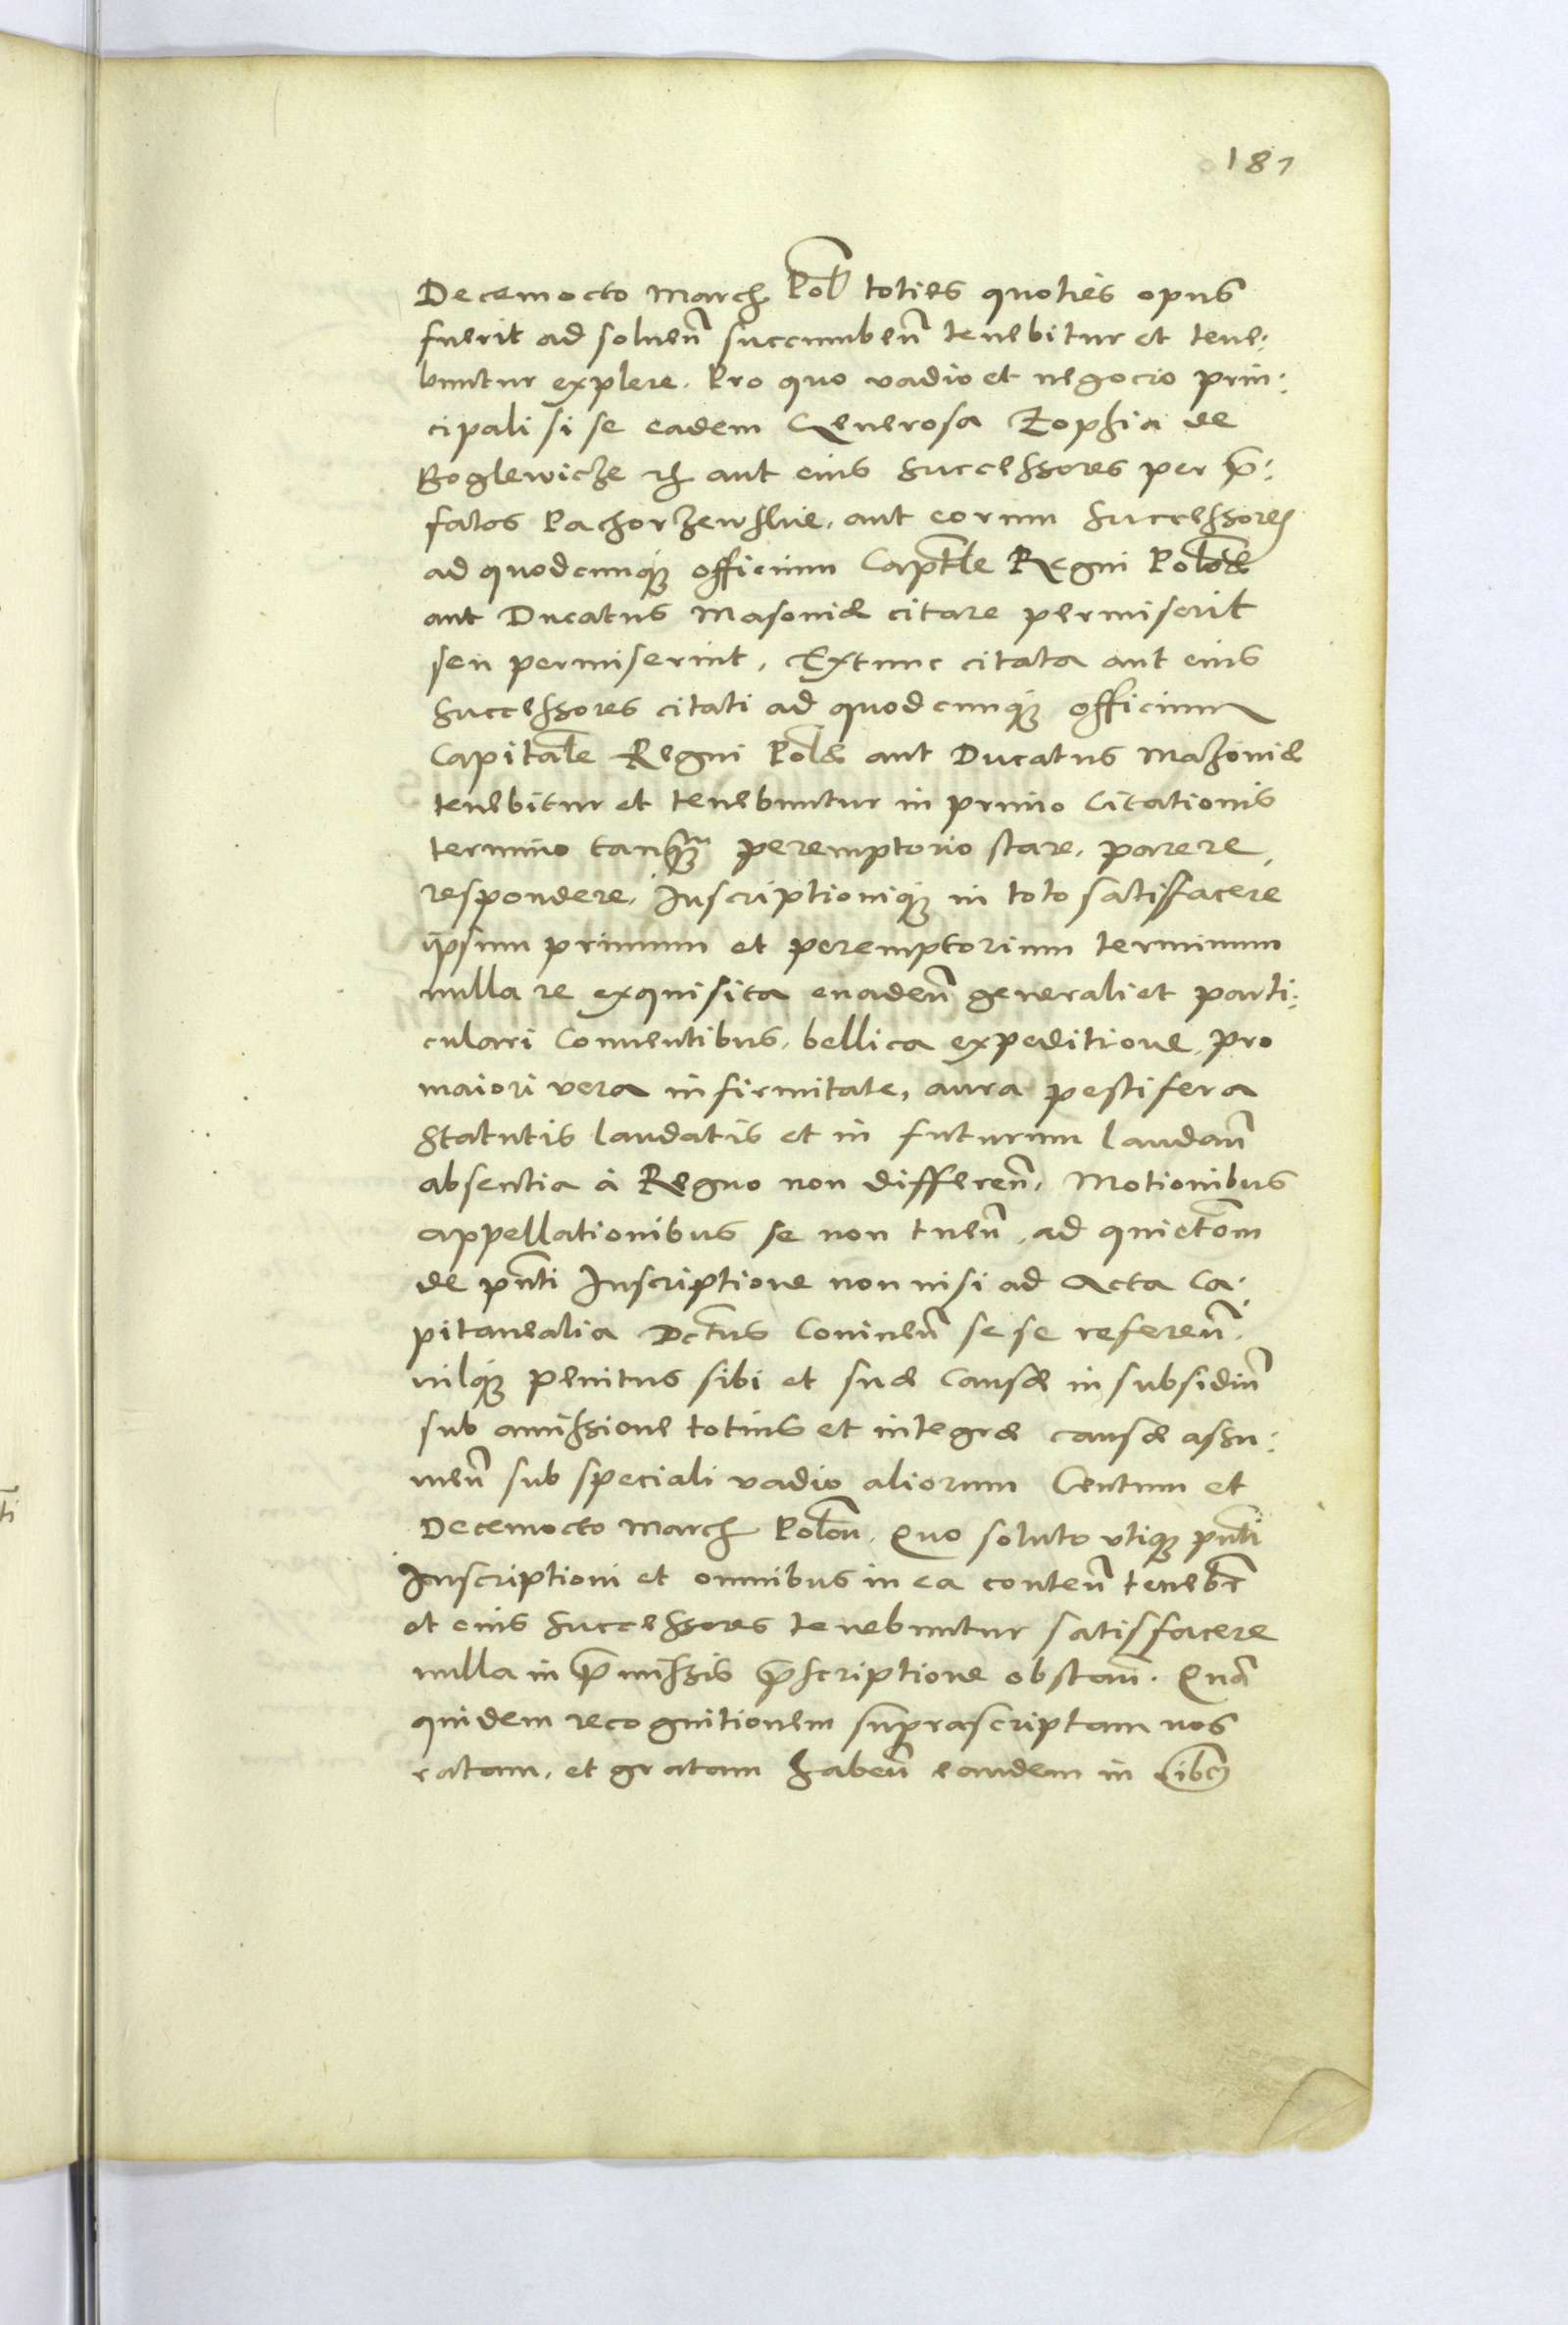 181
Decemocto March Pol̃ toties quoties opus
fuerit ad soluen̄ succumben̄ tenebitur et tene:
buntur explere. Pro quo vadio et negocio prin:
cipali si se eadem Generosa Zophia de
Boglewicze aut eius Successores per p̄:
fatos Pachorzewskie, aut eorum Successores
ad quodcunq3 officium Cap̄tle Regni Polo͞æ
aut Ducatus Masoniæ citare permiserit
seu permiserint, Extunc citata aut eius
Successores citati ad quodcunq3 officium
Capitāle Regni Pol͞æ aut Ducatus Mazoniæ
tenebitur et tenebuntur in primo Citationis
termino tanq3m peremptorio stare, parere,
respondere, Inscriptioniq3 in toto satisfacere
ipsum primum et peremptorium terminum
nulla re exquisita euaden̄ generali et parti:
culari Conuentibus, bellica expeditione, pro
maiori vera infirmitate, aura pestifera
Statutis laudatis et in futurum laudan̄
absentia à Regno non differen̄, Motionibus
appellationibus se non tuen̄, ad quietōm
de pn̄ti Inscriptione non nisi ad Acta Ca:
pitanealia Dc̄tus Conuen̄ sese referen̄.
nilq3 penitus sibi et suæ Causæ in subsidiū
sub amissione totius et integræ causæ assu:
men̄ sub speciali vadio aliorum Centum et
Decemocto March Polōn. Quo soluto vtiq3 pn̄ti
Inscriptioni et omnibus in ea conten̄ teneb̄r
et eius Successores tenebuntur satisfacere
nulla in p̄missis p̄scriptione obstan̄. Quā
quidem recognitionem suprascriptam nos
ratam, et gratam haben̄ eandem in